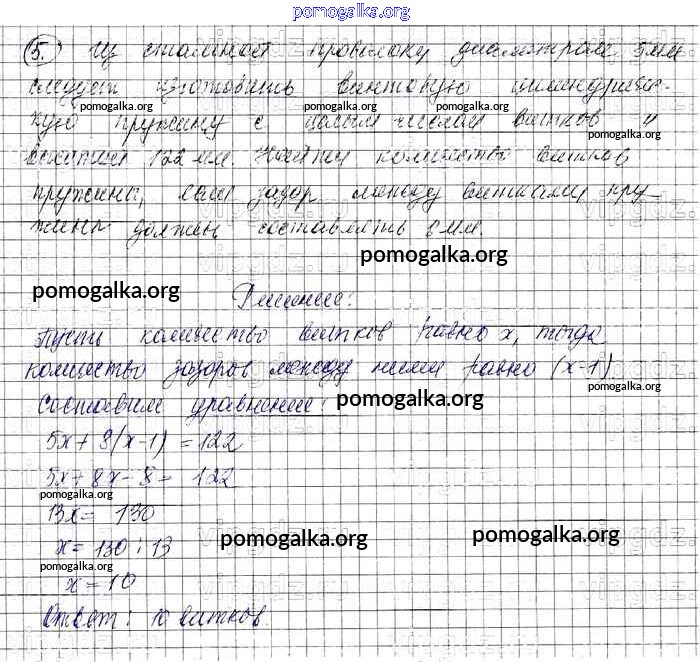 pomogalka.org
5. Из стальной проволоки диаметром 5мм
следует изготовить винтовую цилиндричес-
pomogalka.org pomogalka.org pomogalka.org
кую пружину с целым числом витков и
pomogalka.org
высотой 122 мм. Найти количество витков
pomogalka.org
пружины, если зазор между витками пру-
pomogalka.org pomogalka.org
жины должен составлять 8 мм.
pomogalka.org
pomogalka.org
Решение:
Пусть количество витков равно x, тогда
количество зазоров между ними равно (x-1)
pomogalka.org
Составим уравнение:
pomogalka.org
5x + 8(x-1) = 122
5x + 8x - 8 = 122
pomogalka.org
13x = 130
pomogalka.org
pomogalka.org
x = 130 : 13
pomogalka.org
x = 10
Ответ: 10 витков.
pomogalka.org